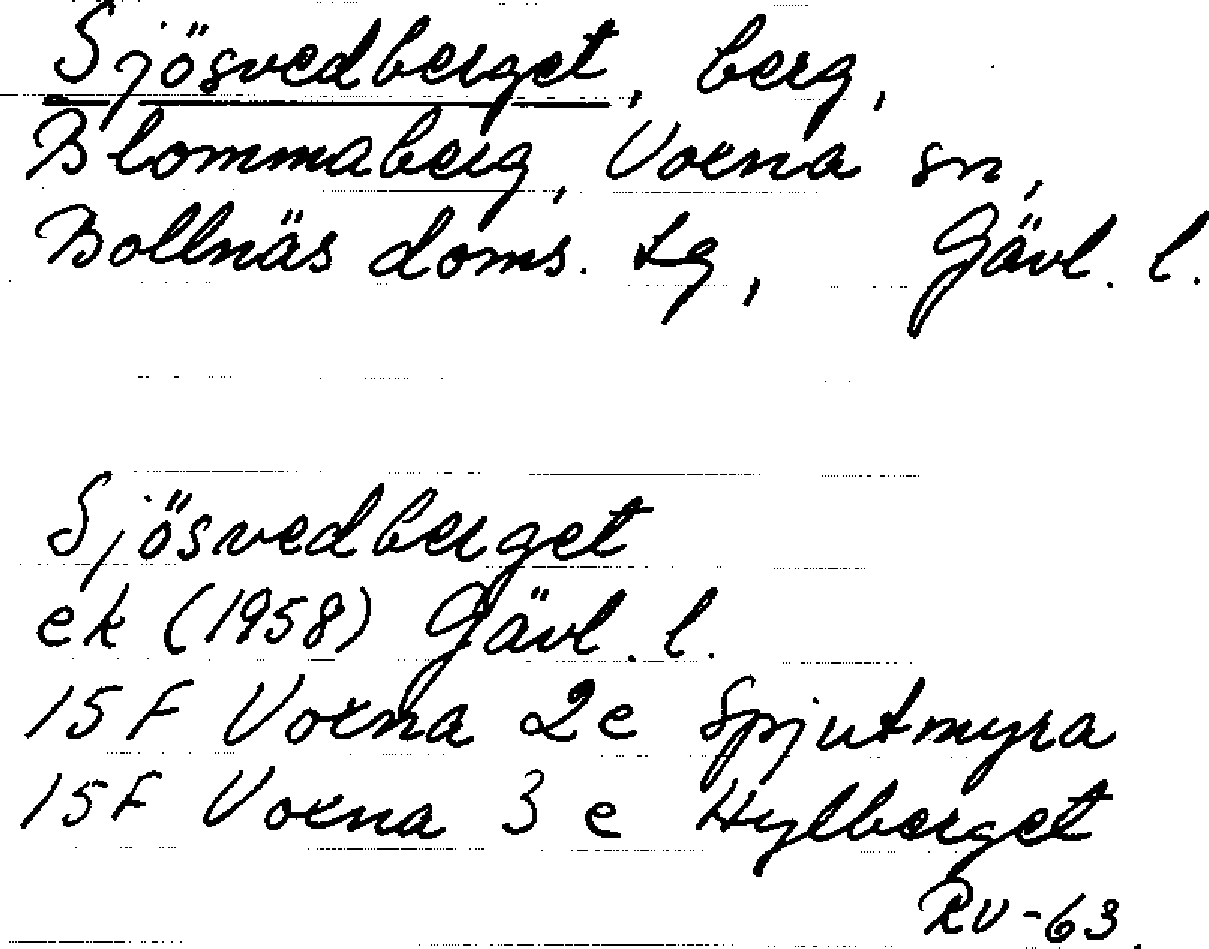 Sjösvedberget, berg,
Blommaberg, Voxna sn,
Bollnäs doms. tg, Gävl. l.
Sjösvedberget
ek (1958) Gävl. l.
15F Voxna 2e Spjutmyra
15F Voxna 3e Hylberget
RV-63.